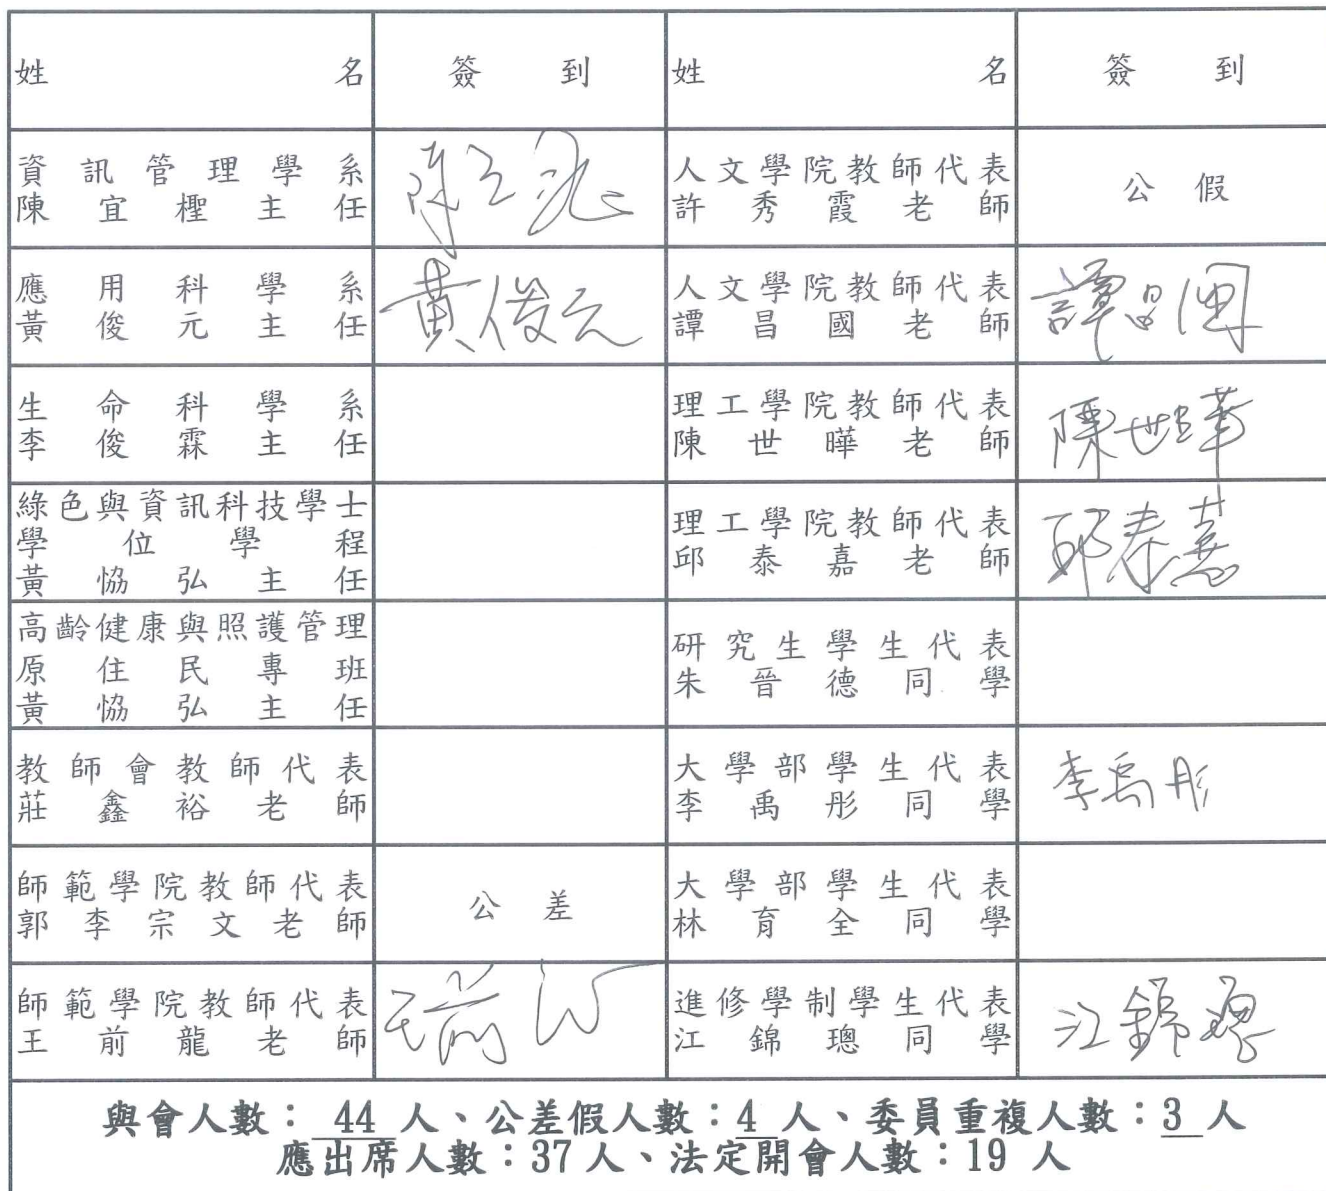 姓名 簽到 姓名 簽到
資訊管理學系
陳宜檉主任
人文學院教師代表
許秀霞老師
公假
應用科學系
黃俊元主任
黃俊元
人文學院教師代表
譚昌國老師
譚昌國
生命科學系
李俊霖主任
理工學院教師代表
陳世曄老師
陳世曄
綠色與資訊科技學士
學位學程
黃恊弘主任
理工學院教師代表
邱泰嘉老師
邱泰嘉
高齡健康與照護管理
原住民專班
黃恊弘主任
研究生學生代表
朱晉德同學
教師會教師代表
莊鑫裕老師
大學部學生代表
李禹彤同學
李禹彤
師範學院教師代表
郭李宗文老師
公差
大學部學生代表
林育全同學
師範學院教師代表
王前龍老師
進修學制學生代表
江錦璁同學
江錦璁
與會人數：44人、公差假人數：4人、委員重複人數：3人
應出席人數：37人、法定開會人數：19人